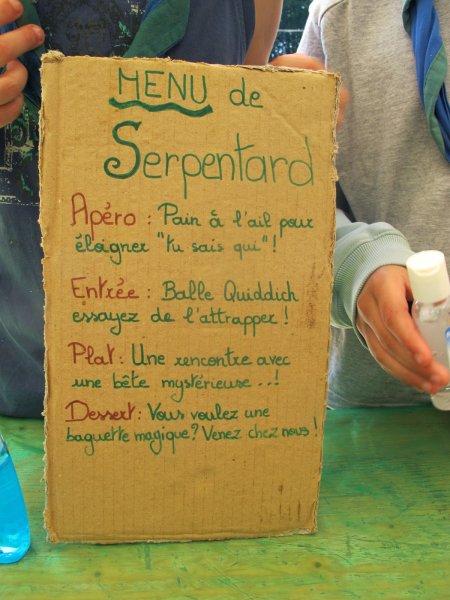 MENU de
Serpentard
Apéro : Pain à l'ail pour
éloigner "tu sais qui"!
Entrée : Balle Quiddich
essayez de l'attrapper !
Plat : Une rencontre avec
une bête mystérieuse...!
Dessert : Vous voulez une
baguette magique? Venez chez nous !